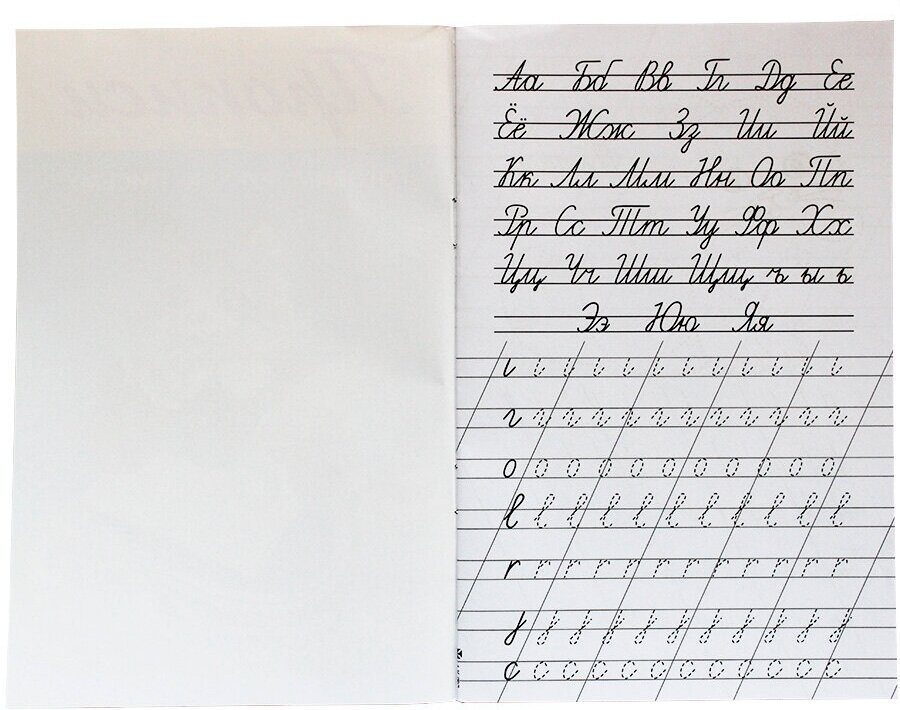 Аа Бб Вв Гг Дд Ее
Ёё Жж Зз Ии Йй
Кк Лл Мм Нн Оо Пп
Рр Сс Тт Уу Фф Хх
Цц Чч Шш Щщ ъ ы ь
Ээ Юю Яя